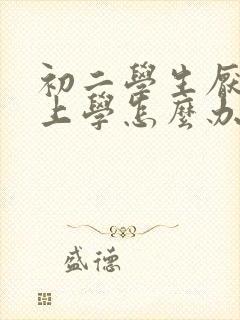 初二學生厭
上學怎麼办
盛德